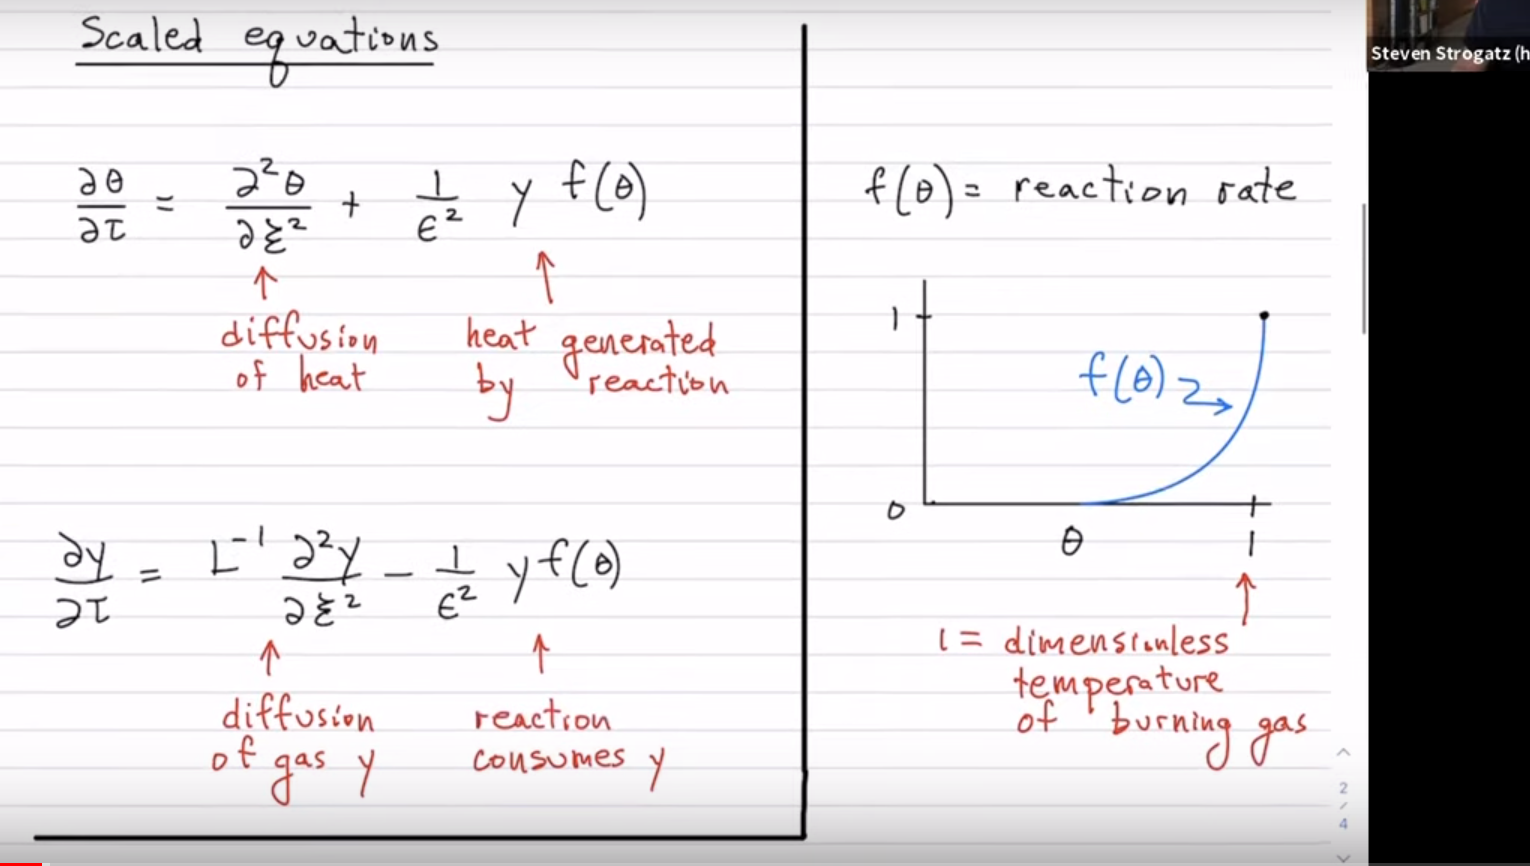 Scaled equations
∂θ/∂τ = ∂²θ/∂ξ² + 1/ϵ² y f(θ)
↑ ↑
diffusion of heat
heat generated by reaction
∂y/∂τ = L⁻¹ ∂²y/∂ξ² − 1/ϵ² y f(θ)
↑ ↑
diffusion of gas y
reaction consumes y
f(θ) = reaction rate
1
f(θ)
0
θ
1
↑
1 = dimensionless
temperature
of burning gas
Steven Strogatz (h
2
/
4